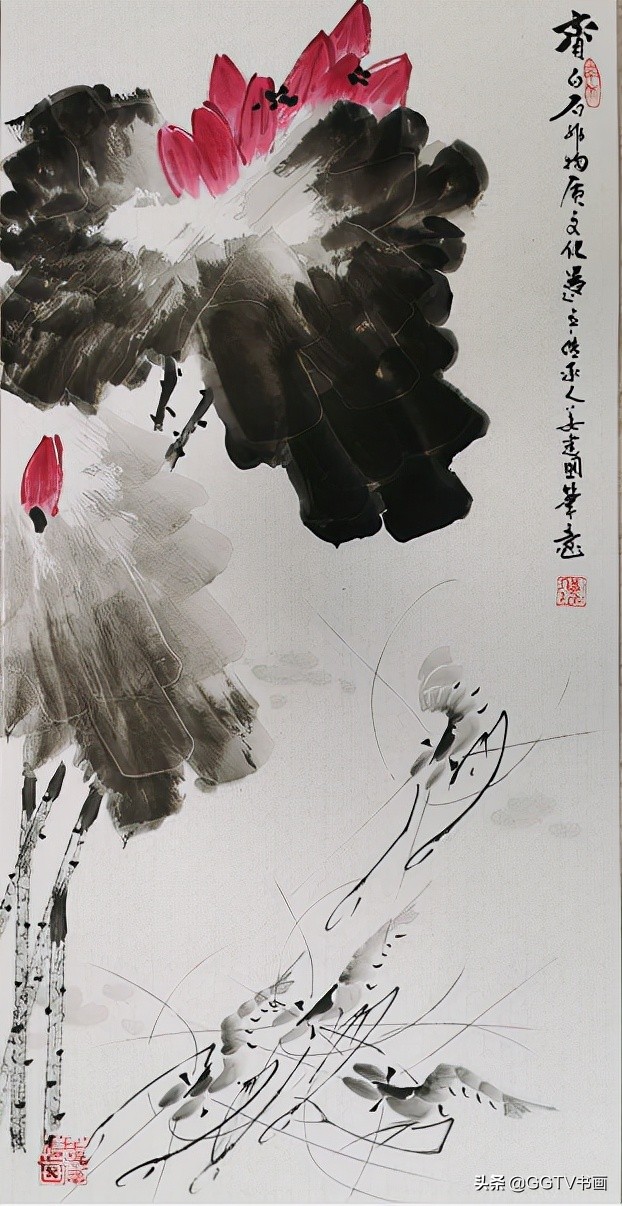 齊白石非物质文化遗产传承人姜建国笔意
头条 @GGTV书画